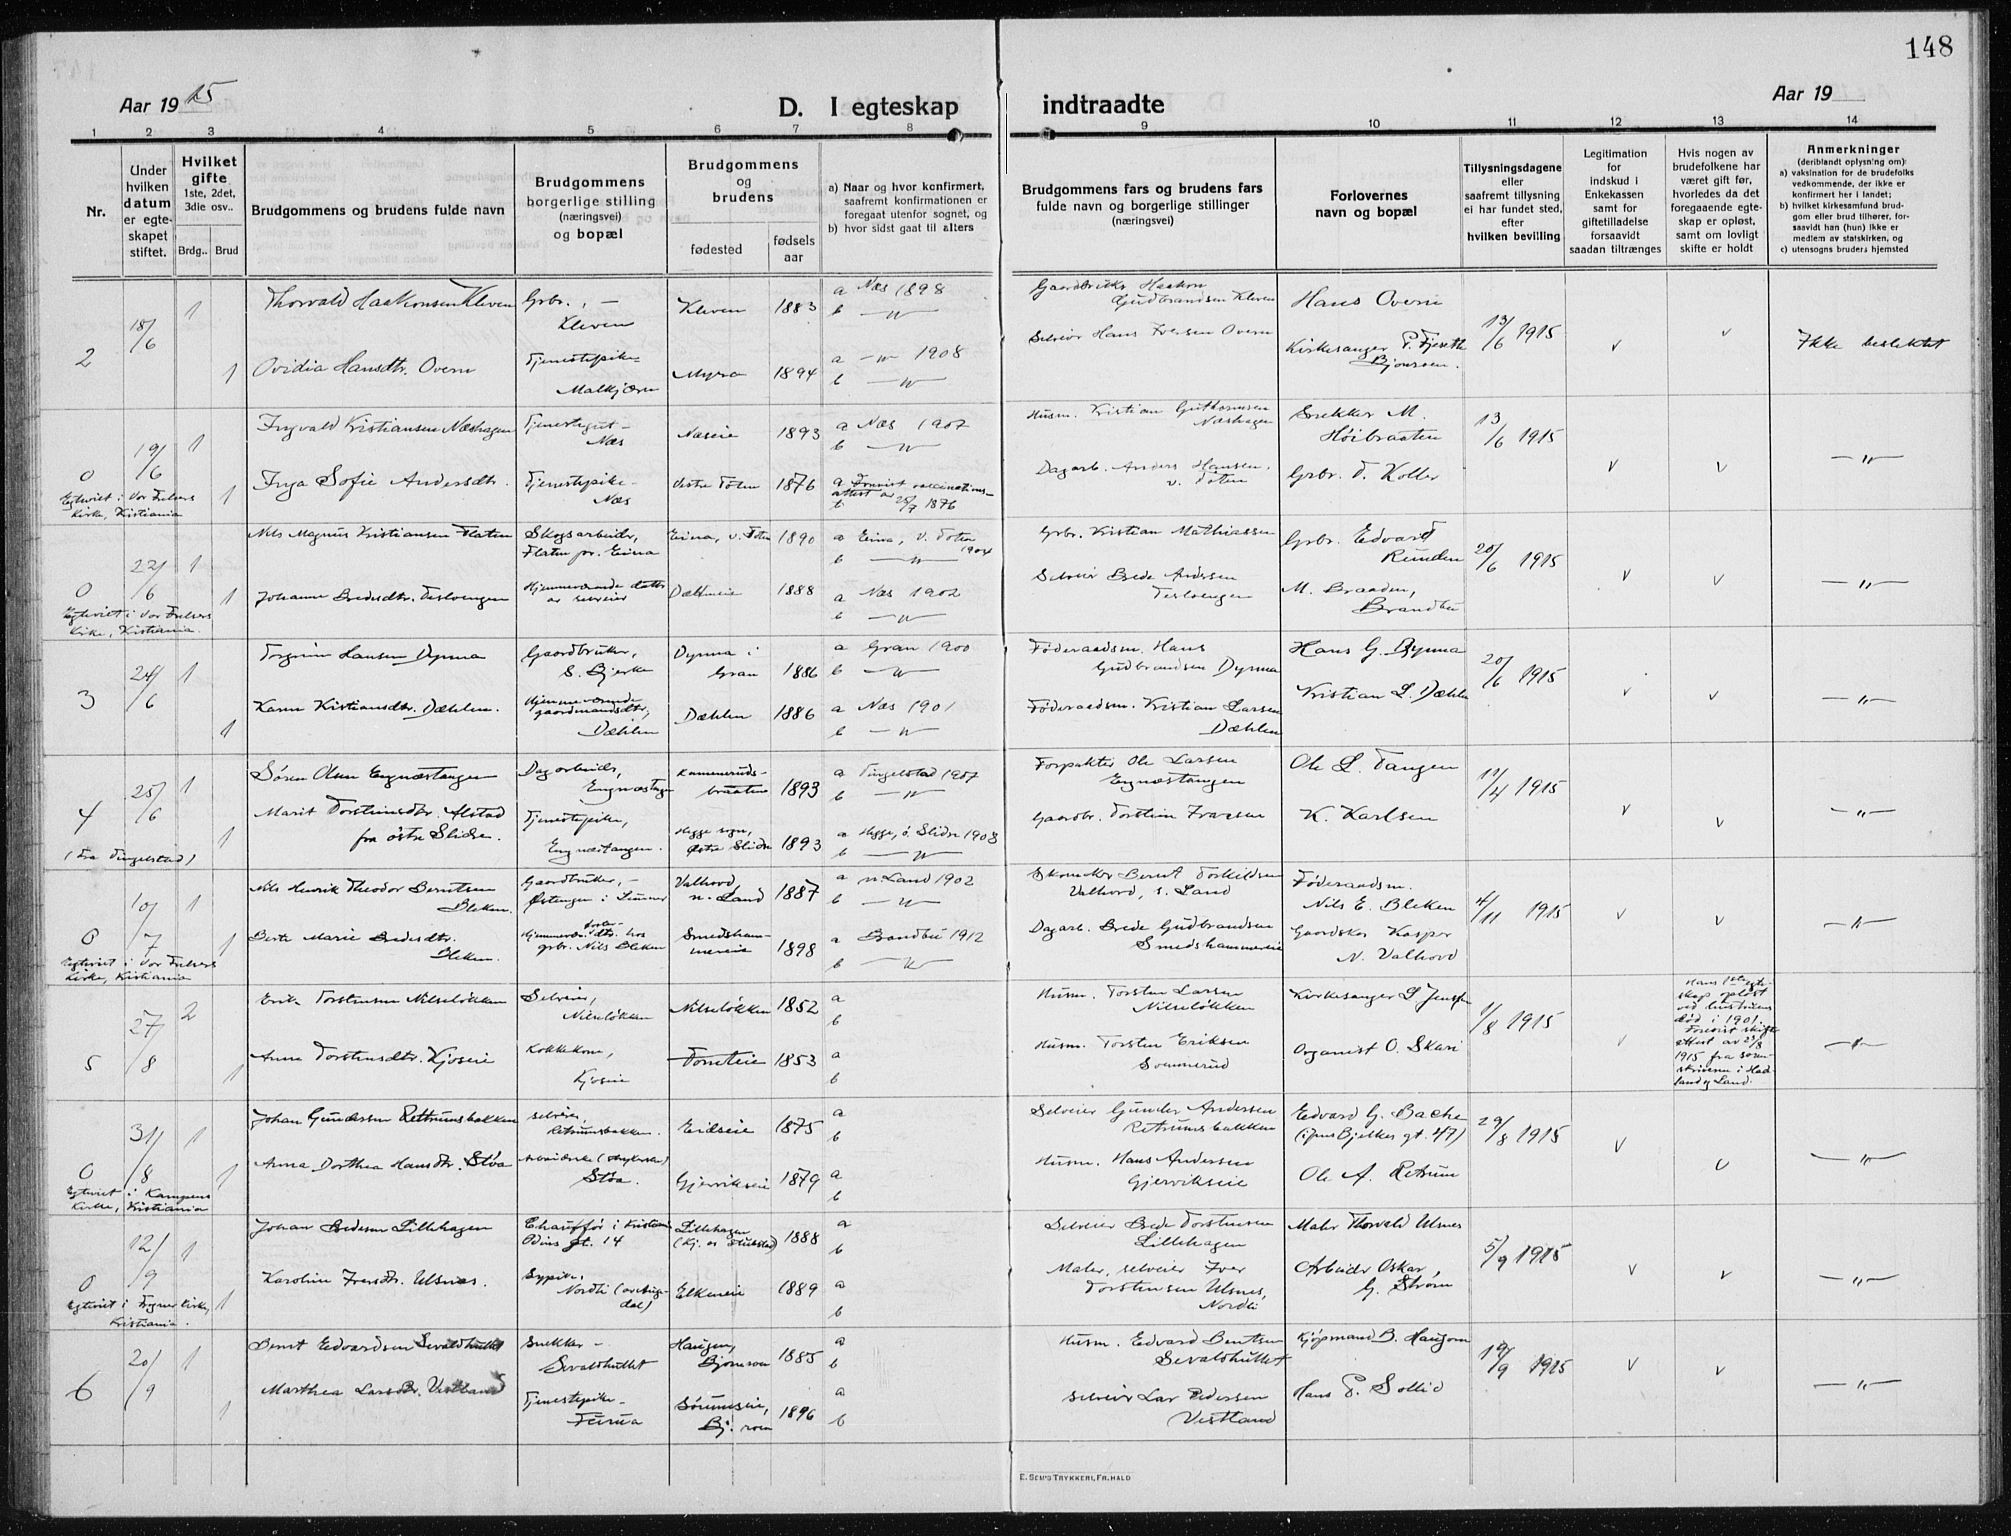 148
Aar 1915
D. I egteskap indtraadte
Aar 19
1 2 3 4 5 6 7 8 9 10 11 12 13 14
Nr.
Under hvilken datum er egteskapet stiftet.
Hvilket gifte 1ste, 2det, 3die osv..
Brdg.. Brud
Brudgommens og brudens fulde navn
Brudgommens borgerlige stilling (næringsvei) og bopæl
Brudgommens og brudens
fødested
fødsels aar
a) Naar og hvor konfirmert, saafremt konfirmationen er foregaat utenfor sognet, og
b) hvor sidst gaat til alters
Brudgommens fars og brudens fars fulde navn og borgerlige stillinger (næringsvei)
Forlovernes navn og bopæl
Tillysningsdagene eller saafremt tillysning ei har fundet sted, efter hvilken bevilling
Legitimation for indskud i Enkekassen samt for giftetilladelse forsaavidt saadan tiltrænges
Hvis nogen av brudefolkene har været gift før, hvorledes da det foregaaende egteskap er opløst, samt om lovligt skifte er holdt
Anmerkninger (deriblandt oplysning om):
a) vaksination for de brudefolks vedkommende, der ikke er konfirmert her i landet;
b) hvilket kirkesamfund brudgom eller brud tilhører, forsaavidt han (hun) ikke er medlem av statskirken, og
c) utensogns bruders hjemsted
2 18/6 1 Thorvald Haakonsen Kleven Grbr., – Kleven Kleven 1883 a Næs 1898 b —"— Gaardbruker Haakon Gudbrandsen Kleven Hans Overn 13/6 1915 Ikke beslektet
1 Ovidia Hansdtr. Overn Tjenestepike – Malkjærn Myra 1894 a —"— 1908 b —"— Selveier Hans Iversen Overn Kirkesanger P. Fjeseth Bjonroen.
0 19/6 1 Ingvald Kristiansen Næshagen Tjenestegut – Næs Næseie 1893 a Næs 1907 b —"— Husm. Kristian Guthormsen Næshagen Snekker M. Høibraaten 13/6 1915 —"—
1 Inga Sofie Andersdtr. Tjenestepike – Næs Vestre Toten 1876 a Forevist vaccinationsattest av 25/7 1876 b Dagarb. Anders Hansen, v. Toten Grbr. T. Koller
Egteviet i Vor Frelsers Kirke, Kristiania
0 22/6 1 Nils Magnus Kristiansen Flaten Skogsarbeider, Flaten pr. Eina Eina, v. Toten 1890 a Eina, V. Toten 1904 b —"— Grbr. Kristian Mathiassen Grbr. Edvard Runden 20/6 1915 —"—
1 Johanne Bredesdtr. Tesloengen Hjemmeværende datter av selveier Dæhlneie 1888 a Næs 1902 b —"— Selveier Brede Andersen Tesloengen M. Braaden, Brandbu
Egteviet i Vor Frelsers Kirke, Kristiania.
3 24/6 1 Torgrim Hansen Dynna Gaardbruker, S. Bjerke Dynna i Gran 1886 a Gran 1900 b —"— Føderaadsm. Hans Gudbrandsen Dynna Hans G. Dynna 20/6 1915 —"—
1 Karen Kistiansdtr. Dæhlen. Hjemmeværende gaardmandsdtr, Dæhlen Dæhlen 1886 a Næs 1901 b —"— Føderaadsm. Kristian Larsen Dæhlen Kristian L. Dæhlen
4 25/6 1 Søren Olsen Engnæstangen Dagarbeider, Engnæstangen Kammerudsbraaten 1893 a Tingelstad 1907 b —"— Forpakter Ole Larsen Engnæstangen Ole L. Tangen 11/4 1915 —"—
1 Marit Torsteinsdtr. Alstad fra østre Slidre. Tjenestepike, Engnæstangen. Hegge sogn, Østre Slidre 1893 a Hegge, ø. Slidre 1908 b —"— Gaardbr. Torstein Ivarsen K. Karlsen
(Fra Tingelstad)
0 10/7 1 Nils Henrik Theodor Berntsen Bleken. Gaardbruker, – Østengen i Lunner Valhovd, n. Land 1887 a n. Land 1902 b —"— Skomaker Bernt Torkildsen Valhovd, n. Land Føderaadsm. Nils E. Bleken 4/11 1915 —"—
1 Berte Marie Bredesdtr. Bleken. Hjemmevær. fosterdtr. hos grbr. Nils Bleken Smedshammereie 1898 a Brandbu 1912 b —"— Dagarb. Brede Gudbrandsen Smedshammereie Gaardskar Kasper N. Valhovd
Egteviet i Vor Frelsers Kirke, Kristiania
5 27/8 2 Erik Torstensen Nilseløkken Selveier, Nilseløkken Nilseløkken 1852 a b Husm. Torsten Larsen Nilseløkken Kirkesanger L. Jensen 1/8 1915 Hans 1ste egteskap opløst ved hustruens død i 1901. Forevist skifteattest av 23/8 1915 fra sorenskriveren i Hadeland og Land. —"—
1 Anne Torstensdtr. Kjoseie Kokkekone, Kjoseie Tomteie 1853 a b Husm. Torsten Eriksen Sommerud Organist O. Skari
0 31/8 1 Johan Gundersen Retrumsbakken selveier, Retrumsbakken. Eidseie 1875 a b Selveier Gunder Andersen Retrumsbakken Edvard G. Bache (Jens Bjelkes gt. 47) 29/8 1915 —"—
1 Anna Dorthea Hansdtr. Støa Støa. Gjervikseie 1879 a b Husm. Hans Andersen Gjervikseie Ole A. Retrum
Egteviet i Kampens Kirke, Kristiania
0 12/9 1 Johan Bredesen Lillehagen Chauffør i Kristiania Odins gt. 14 Lillehagen 1888 a b Selveier Brede Torstensen Lillehagen Maler Thorvald Ulsnes 5/9 1915 —"—
1 Karoline Iversdtr. Ulsnes. Sypike, Nordli Elkneie 1889 a b Maler, selveier Iver Torstensen Ulsnes, Nordli Arbeider Oskar G. Strøm
Egteviet i Frogner Kirke, Kristiania.
6 20/9 1 Bernt Edvardsen Sevaldshullet Snekker – Sevaldshullet Haugen, Bjoneroa 1885 a b Husm. Edvard Berntsen Sevaldshullet Kjøpmand B. Haugom 19/9 1915 —"—
1 Marthea Larsdtr. Vestland Tjenestepike – Feiriua Sørumseie, Bj. roa 1896 a b Selveier Lar Pedersen Vestland Hans P. Sollid
E. Sem's Trykkeri, Fr.hald